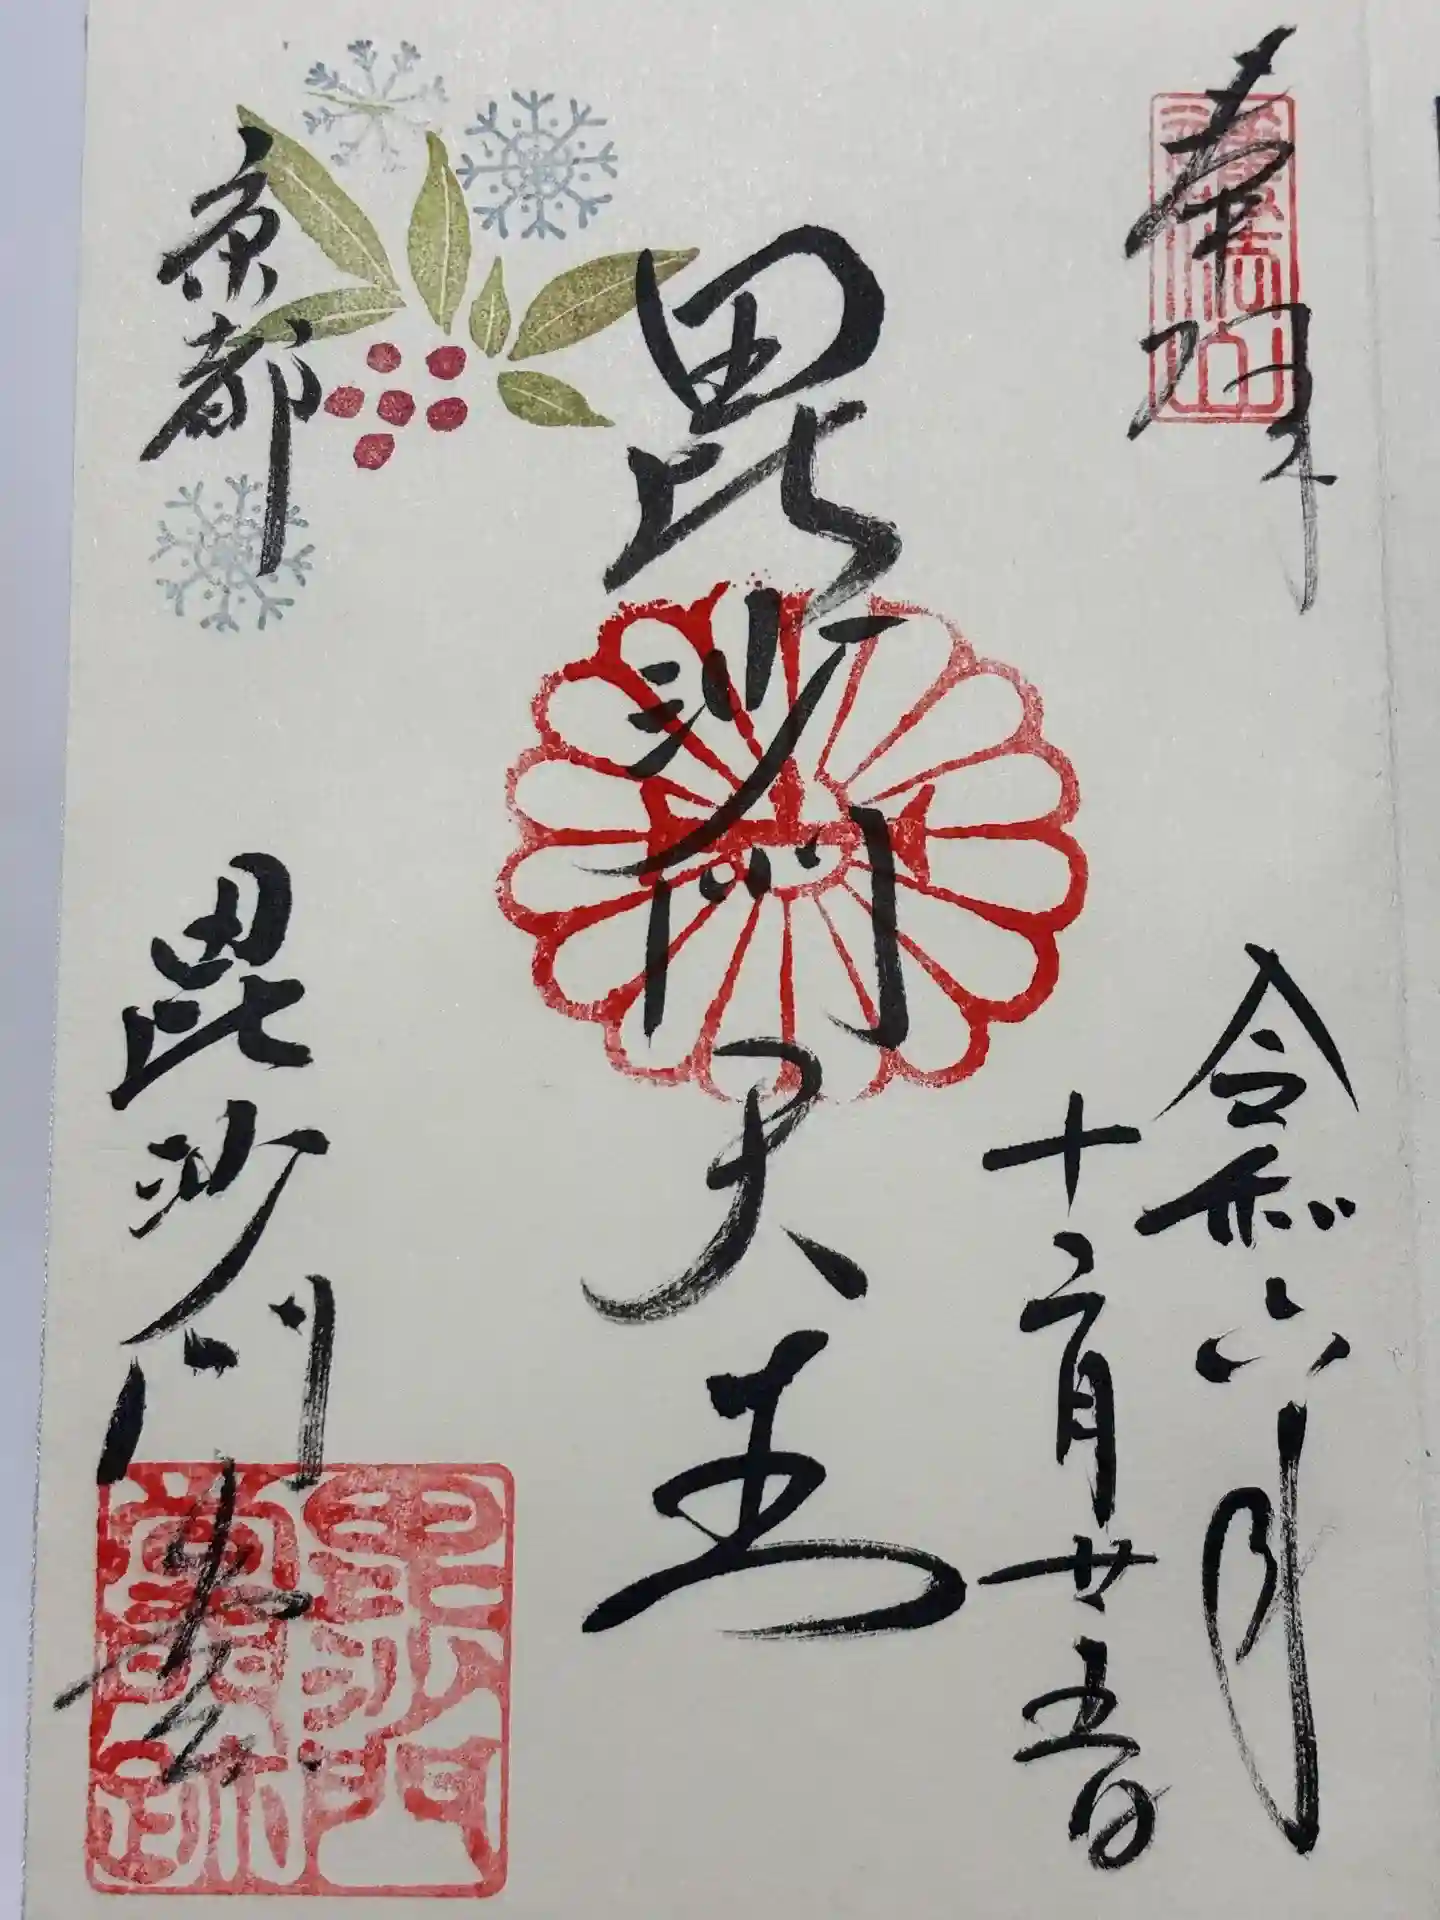 奉拝
令和六年
十二月廿五日
毘沙門天王
京都
毘沙門堂
毘沙門
堂門跡